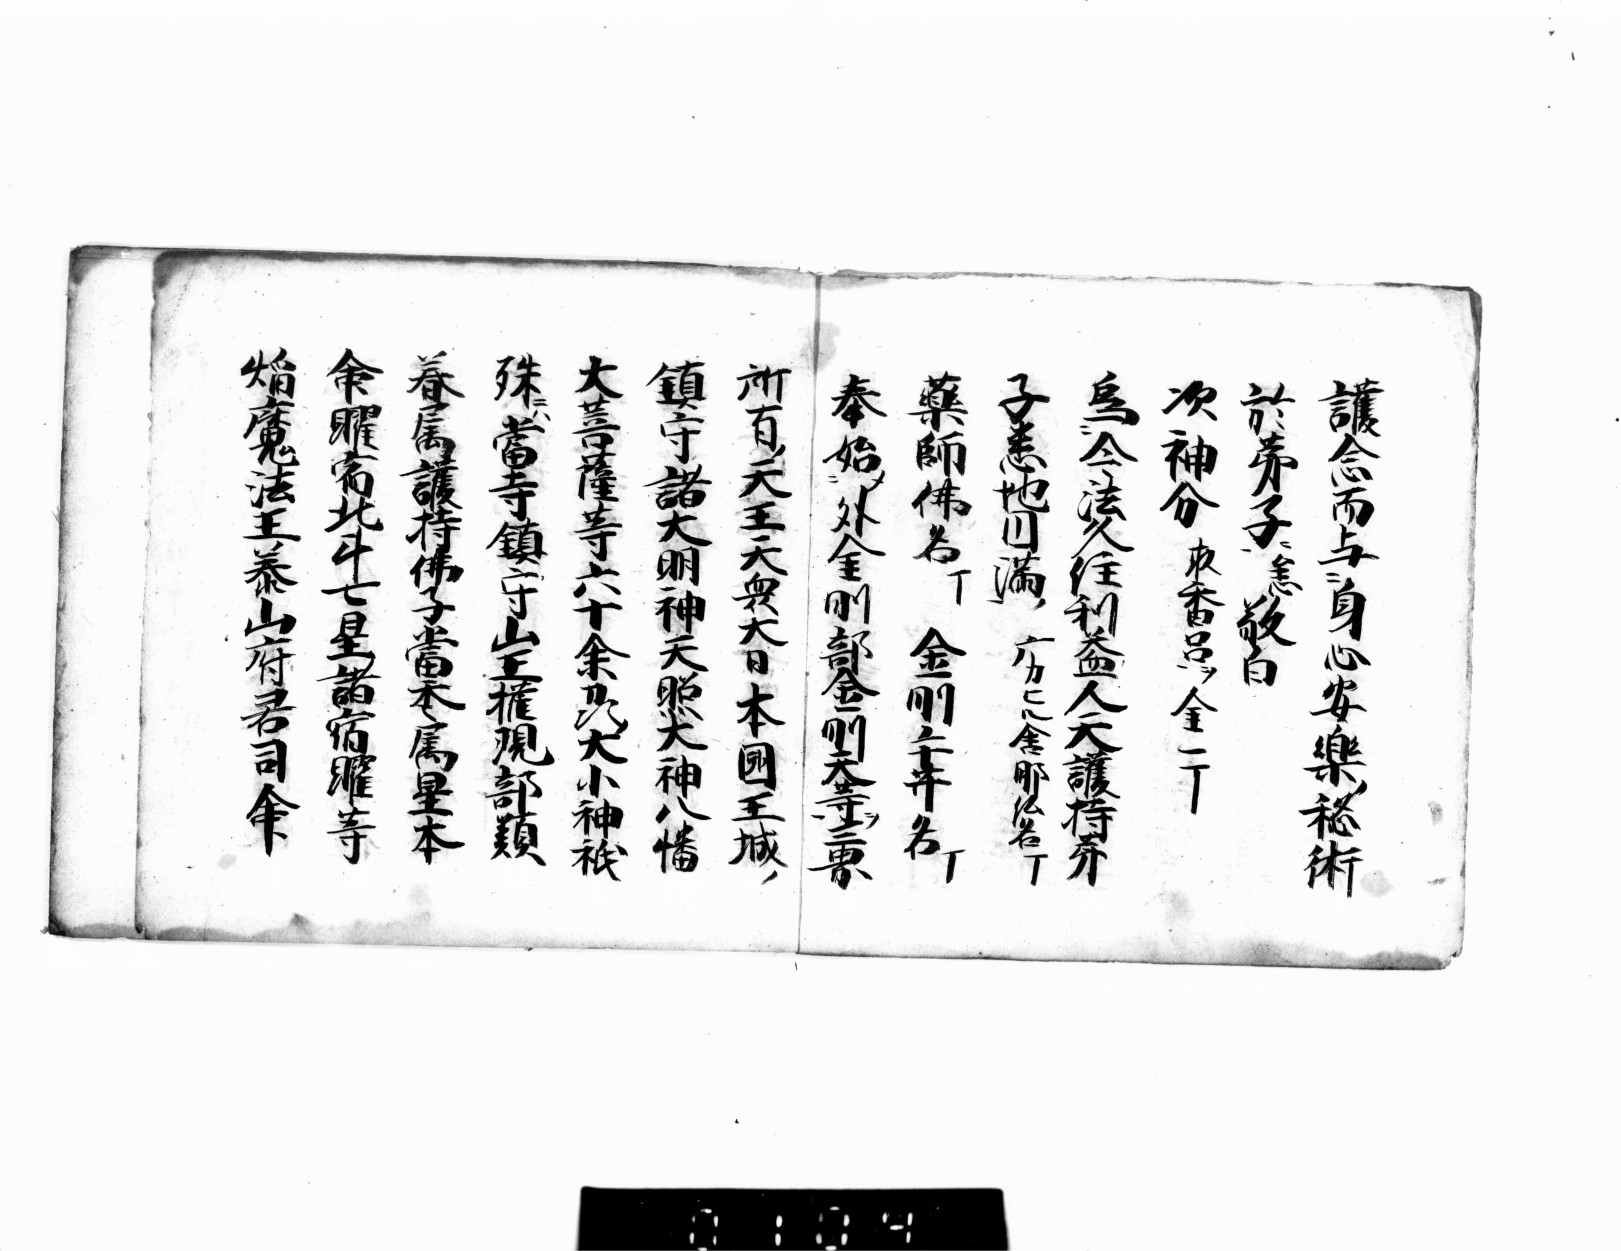 護念而与身心安樂秘術
於弟子敬白
次神分 取香呂 金一丁
為令法久住利益人天護持弟
子悉地円満 广力ヒル舎那仏名丁
藥師佛名丁 金剛手菩薩名丁
奉始外金剛部金剛天等三界
所有天王天衆大日本國王城
鎮守諸大明神天照大神八幡
大菩薩等六十余乃大小神祇
殊當寺鎮守山王權現部類
眷属護持佛子當本属星本
命曜宿北斗七星諸宿曜等
焔魔法王泰山府君司命
0104